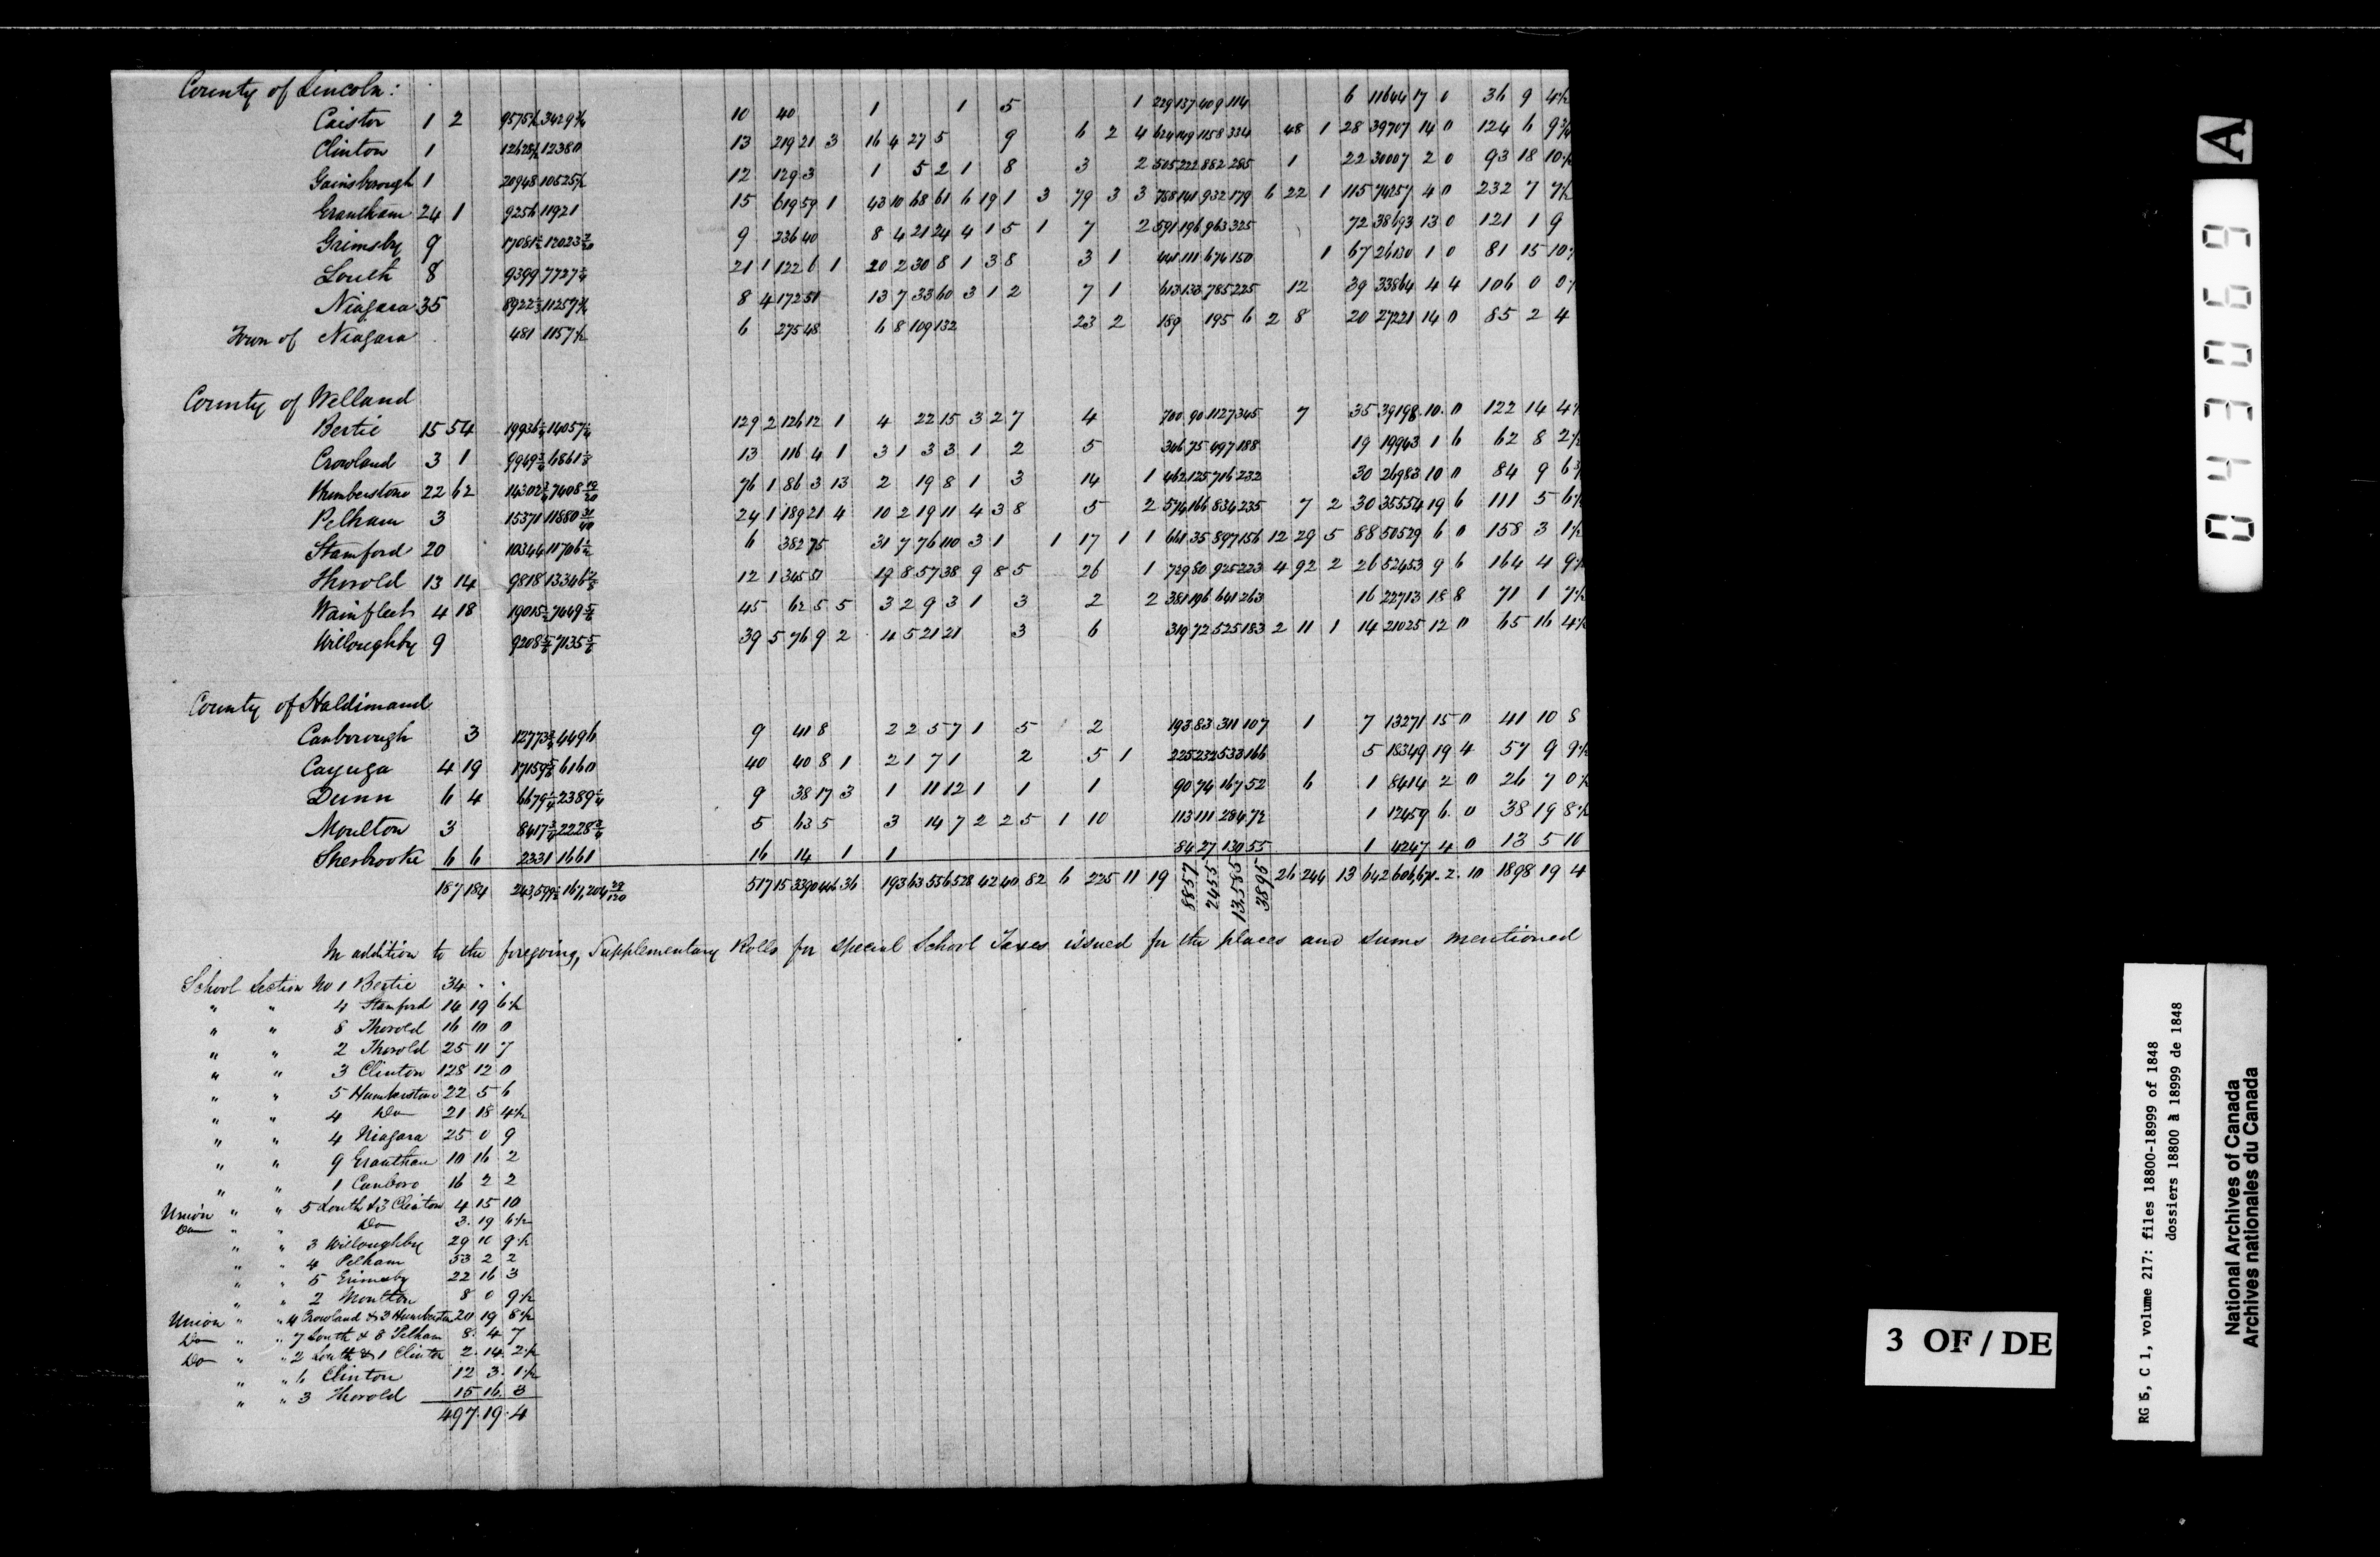 County of Lincoln:
Caistor 1 2 9575½ 3429¾ 10 40 1 1 5 1 229 137 409 114 6 11644 17 0 36 9 4½
Clinton 1 12628½ 12380 13 219 21 3 16 4 27 5 9 6 2 4 624 149 1158 334 48 1 28 39707 14 0 124 6 9¾
Gainsborough 1 20948 10525½ 12 129 3 1 5 2 1 8 3 2 505 222 882 285 1 22 30007 2 0 93 18 10½
Grantham 24 1 9256 11921 15 619 59 1 43 10 68 61 6 19 1 3 79 3 3 768 141 932 179 6 22 1 115 74257 4 0 232 7 7½
Grimsby 9 17081½ 12023 9 236 40 8 4 21 24 4 1 5 1 7 2 591 196 963 325 72 38693 13 0 121 1 9
Louth 8 9399 7727¾ 21 1 122 6 1 20 2 30 8 1 3 8 3 1 441 111 674 150 1 67 26130 1 0 81 15 10
Niagara 35 8922½ 11257¾ 8 4 172 51 13 7 33 60 3 1 2 7 1 613 133 785 225 12 39 33864 4 4 106 0 0
Town of Niagara 481 1157½ 6 275 48 6 8 109 132 23 2 189 195 6 2 8 20 27221 14 0 85 2 4
County of Welland
Bertie 15 54 19936¾ 14057¼ 129 2 126 12 1 4 22 15 3 2 7 4 700 90 1127 345 7 35 39198 10 0 122 14 4
Crowland 3 1 9949¾ 6861 13 116 4 1 3 1 3 3 1 2 5 346 75 497 188 19 19943 1 6 62 8 2½
Humberstone 22 62 14302¾ 7408 19/20 76 1 86 3 13 2 19 8 1 3 14 1 462 125 716 232 30 26983 10 0 84 9 6
Pelham 3 15371 11880 31/40 24 1 189 21 4 10 2 19 11 4 3 8 5 2 574 166 834 235 7 2 30 35554 19 6 111 5 6½
Stamford 20 10344 11706½ 6 382 75 31 7 76 110 3 1 1 17 1 1 661 35 897 156 12 29 5 88 50529 6 0 158 3 1½
Thorold 13 14 9818 13346 12 1 345 51 19 8 57 38 9 8 5 26 1 729 80 925 223 4 92 2 26 52453 9 6 164 4 9½
Wainfleet 4 18 19015½ 7649 45 62 5 5 3 2 9 3 1 3 2 2 381 196 641 263 16 22713 18 8 71 1 7½
Willoughby 9 9208 7135 39 5 76 9 2 4 5 21 21 3 6 319 72 525 183 2 11 1 14 21025 12 0 65 16 4½
County of Haldimand
Canborough 3 12773 4496 9 41 8 2 2 5 7 1 5 2 193 83 311 107 1 7 13271 15 0 41 10 8
Cayuga 4 19 17159 6160 40 40 8 1 2 1 7 1 2 5 1 225 232 533 166 5 18349 19 4 57 9 9½
Dunn 6 4 6679¼ 2389¼ 9 38 17 3 1 11 12 1 1 1 90 74 167 52 6 1 8414 2 0 26 7 0½
Moulton 3 8417¾ 2228¾ 5 63 5 3 14 7 2 2 5 1 10 113 111 284 72 1 12459 6 0 38 19 8½
Sherbrooke 6 6 2331 1661 16 14 1 1 84 27 130 55 1 4247 4 0 13 5 10
187 184 243,599½ 167,204 29/120 517 15 3390 446 36 193 63 556 528 42 40 82 6 225 11 19 8857 2455 13.585 3895 26 244 13 642 606,671. 2. 10 1898 19 4
In addition to the foregoing, Supplementary Rolls for Special School Taxes issued for the places and sums mentioned
School Section No 1 Bertie 34 " "
" " 4 Stamford 14 19 6½
" " 8 Thorold 16 10 0
" " 2 Thorold 25 11 7
" " 3 Clinton 128 12 0
" " 5 Humberstone 22 5 6
" " 4 Do 21 18 4½
" " 4 Niagara 25 0 9
" " 9 Grantham 10 16 2
" " 1 Canboro 16 2 2
Union " " 5 Louth & 3 Clinton 4 15 10
Do " " Do 3. 19 6½
" " 3 Willoughby 29 10 9½
" " 4 Pelham 53 2 2
" " 5 Grimsby 22 16 3
" " 2 Moulton 8 0 9½
Union " " 4 Crowland & 3 Humberstone 20 19 8½
Do " " 7 Louth & 8 Pelham 8. 4 7
Do " " 2 Louth & 1 Clinton 2. 14. 2½
" " 6 Clinton 12 3. 1½
" " 3 Thorold 15 16. 3
497. 19. 4
A
043069
3 OF / DE
RG 5, C 1, volume 217: files 18800-18999 of 1848
dossiers 18800 à 18999 de 1848
National Archives of Canada
Archives nationales du Canada